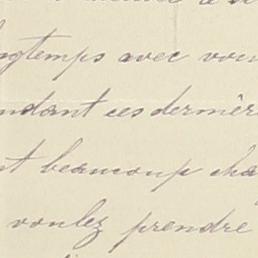 ngtemps avec vou
ndant ces dernièr
nt beaucoup cha
voulez prendre